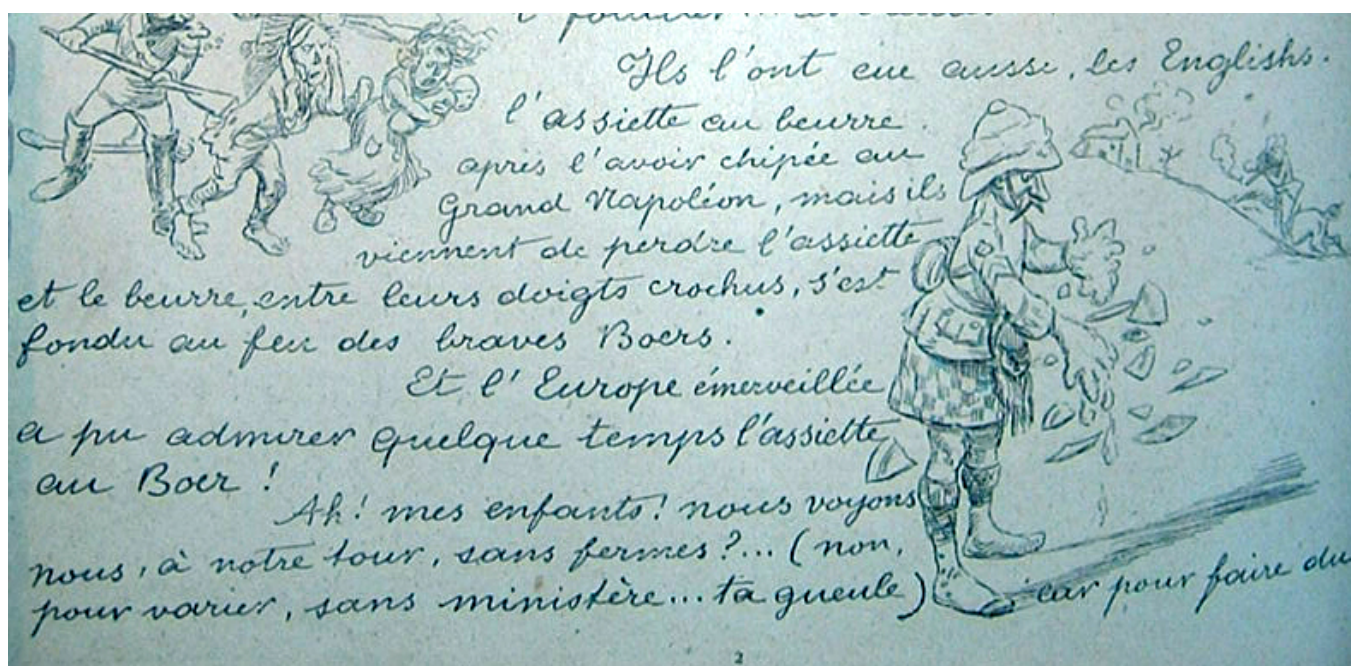 Ils l'ont eue aussi, les Englishs.
l'assiette au beurre.
après l'avoir chipée au
Grand Napoléon, mais ils
viennent de perdre l'assiette
et le beurre, entre leurs doigts crochus, s'est
fondu au feu des braves Boers.
Et l'Europe émerveillée
a pu admirer quelque temps l'assiette
au Boer !
Ah ! mes enfants ! nous voyons
nous, à notre tour, sans fermes ?... (non,
pour varier, sans ministère... ta gueule) car pour faire du
2